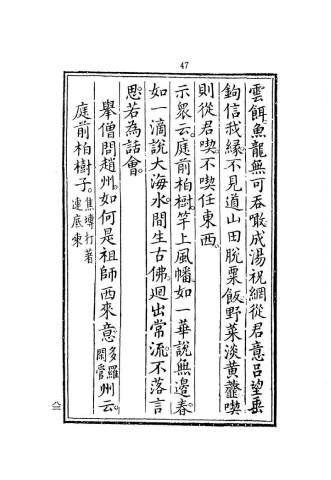 47
雲餌魚龍無可吞噉成湯祝網從君意呂望垂
鉤信我緣不見道山田脫粟飯野菜淡黃虀喫
則從君喫不喫任東西
示眾云庭前柏樹竿上風幡如一華說無邊春
如一滴說大海水間生古佛迥出常流不落言
思若為話會
舉僧問趙州如何是祖師西來意多羅閣管州云
庭前柏樹子焦塼打著連底凍